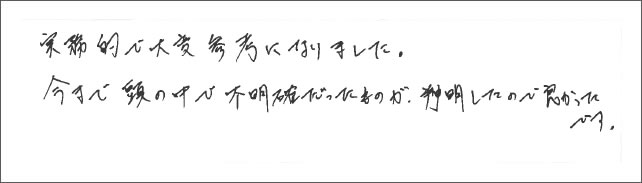 実務的で大変参考になりました。
今まで頭の中で不明確だったものが、判明したので良かった
です。